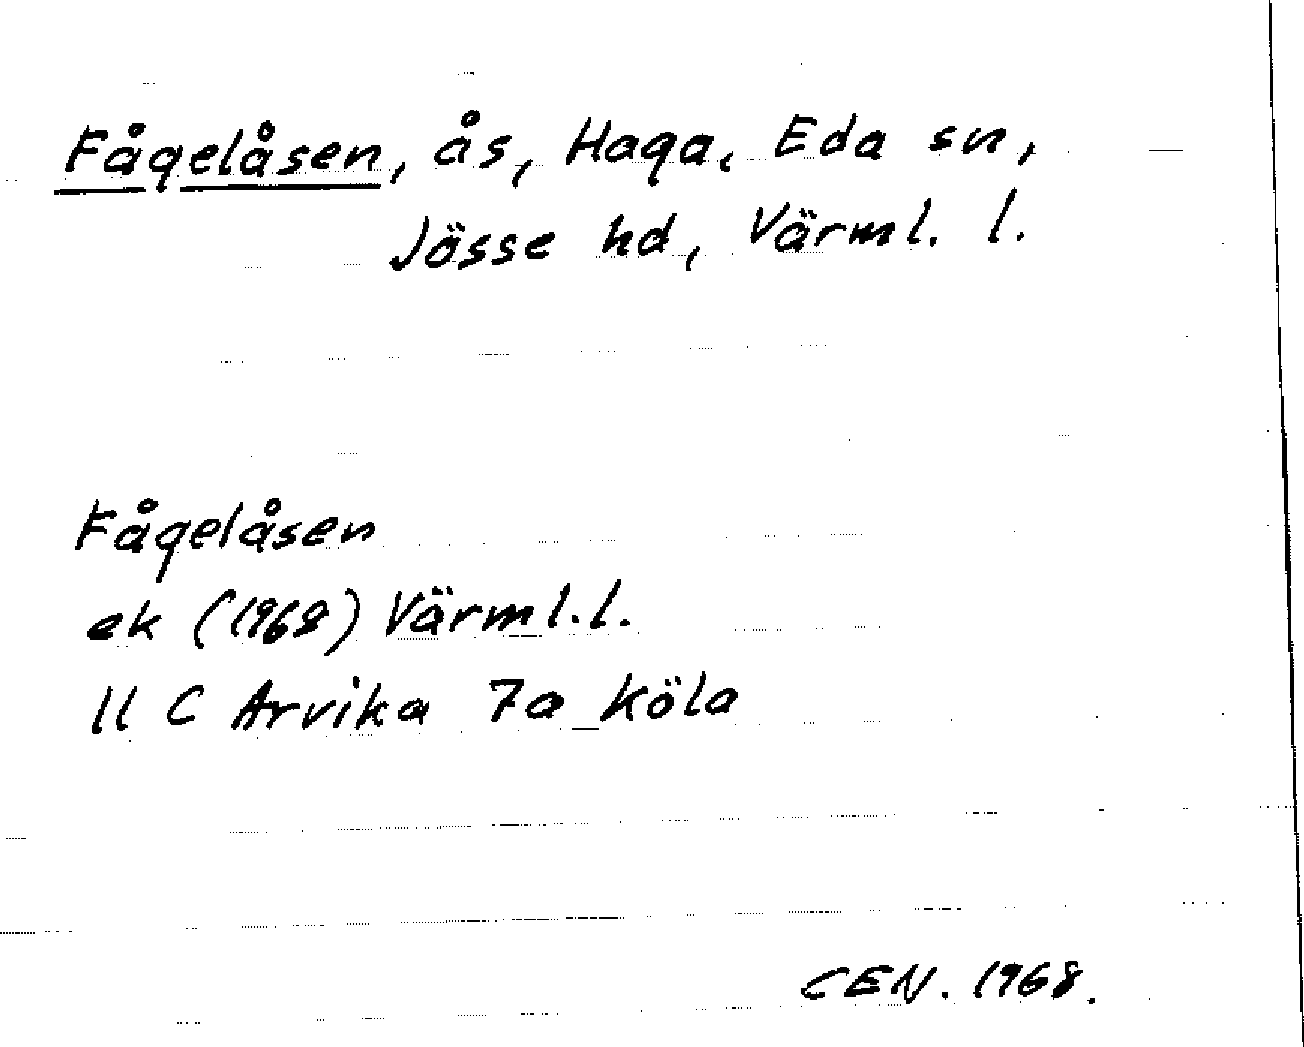 Fågelåsen, ås, Haga, Eda sn,
Jösse hd, Värml. l.
Fågelåsen
ek (1968) Värml.l.
11 C Arvika 7a Köla
CEN. 1968.